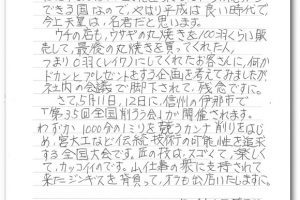 できる国なので、やはり平成は良い時代で、
今上天皇は、名君だと思います。
ウチの店も、ウサギの丸焼きを100羽くらい販
売して、最後の丸焼きを買ってくれた人、
つまり0羽(レイワ)にしてくれたお客さんに、何か
ドカンとプレゼントをする企画を考えてみましたが
社内の会議で脚下されて、残念ですに。
さて、5月11日、12日に、信州の伊那市で
「第35回全国削ろう会」が開催されます。
わずか1000分の1ミリを競うカンナ削りをはじ
め、宮大工など伝統技術の可能性を追求
する全国大会です。匠の技は、スゴくて、楽しく
て、カッコイイのです。山仕事の衆に支持されて
来たジンギスを背負って、オラも応援いたしますに。